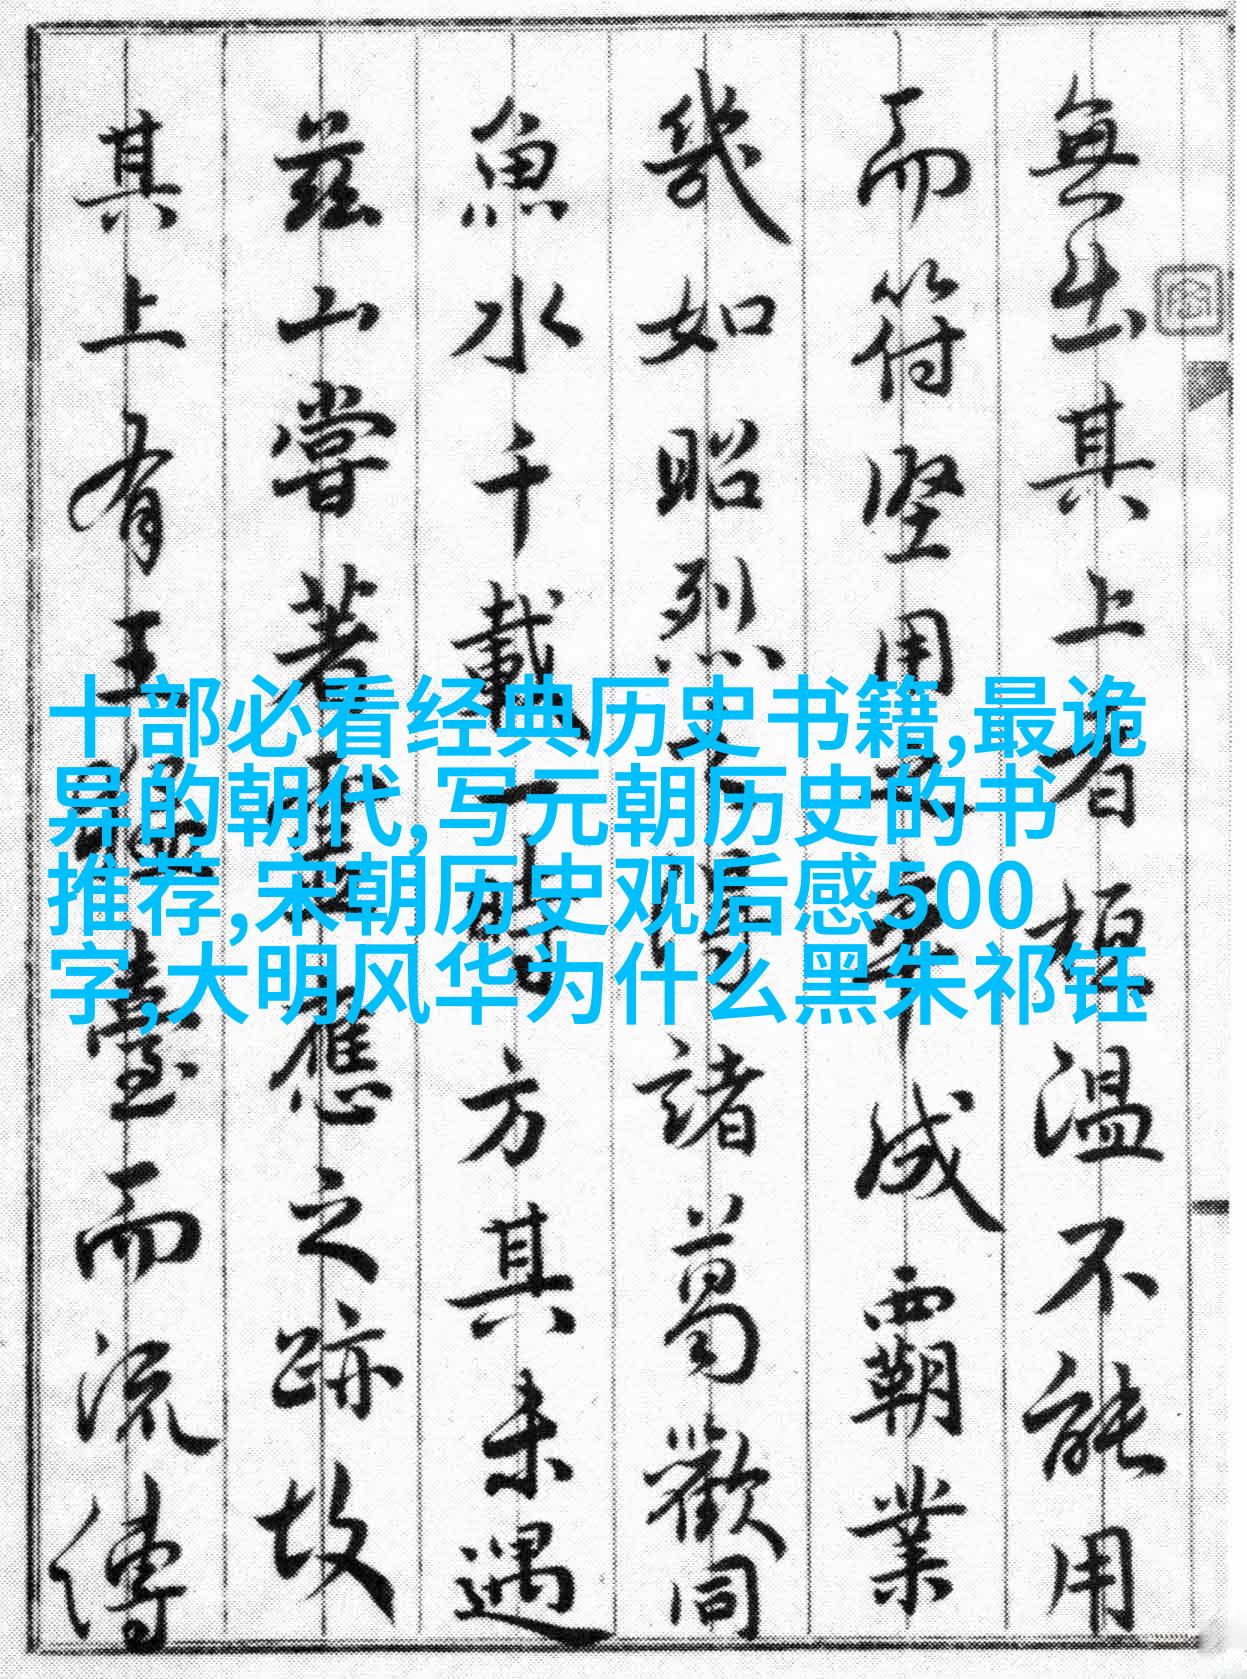 無出其上者桓温不能用
而符坚用之卒成覇業
幾如昭烈之得諸葛歡同
魚水千載一時方其未遇
茲山嘗著靈應之跡故
其上有王猛臺而流傳
十部必看经典历史书籍,最诡
异的朝代,写元朝历史的书
推荐,宋朝历史观后感500
字,大明风华为什么黑朱祁钰